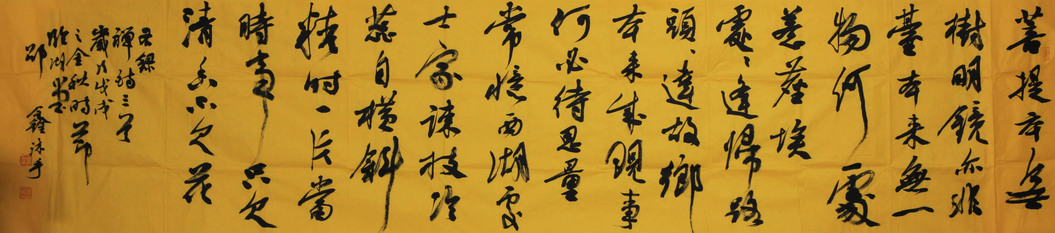 菩提本無
樹明鏡亦非
臺本来無一
物何處
惹塵埃
處、逢歸路
頭、達故鄉
本来成現事
何必待思量
常憶西湖處
士家疎枝冷
蕊自橫斜
精時一片當
時事只欠
清香不欠花
禪詩三首
歲次戊戌
之金秋時節